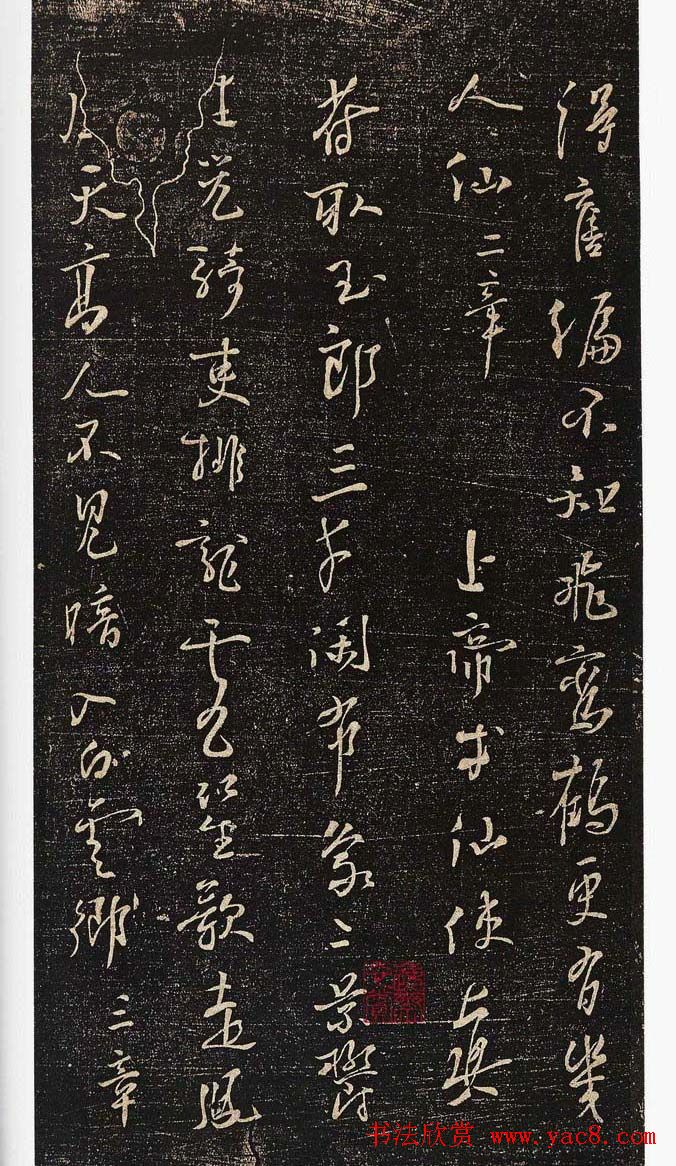 得舊編不知飛鸞鶴更有幾
人仙 二章 上帝求仙使真
符取玉郎三才閑布象二景鬱
生光騎吏排龍虎笙歌走鳳
凰天高人不見暗入白雲鄉 三章
书法欣赏 www.yac8.com